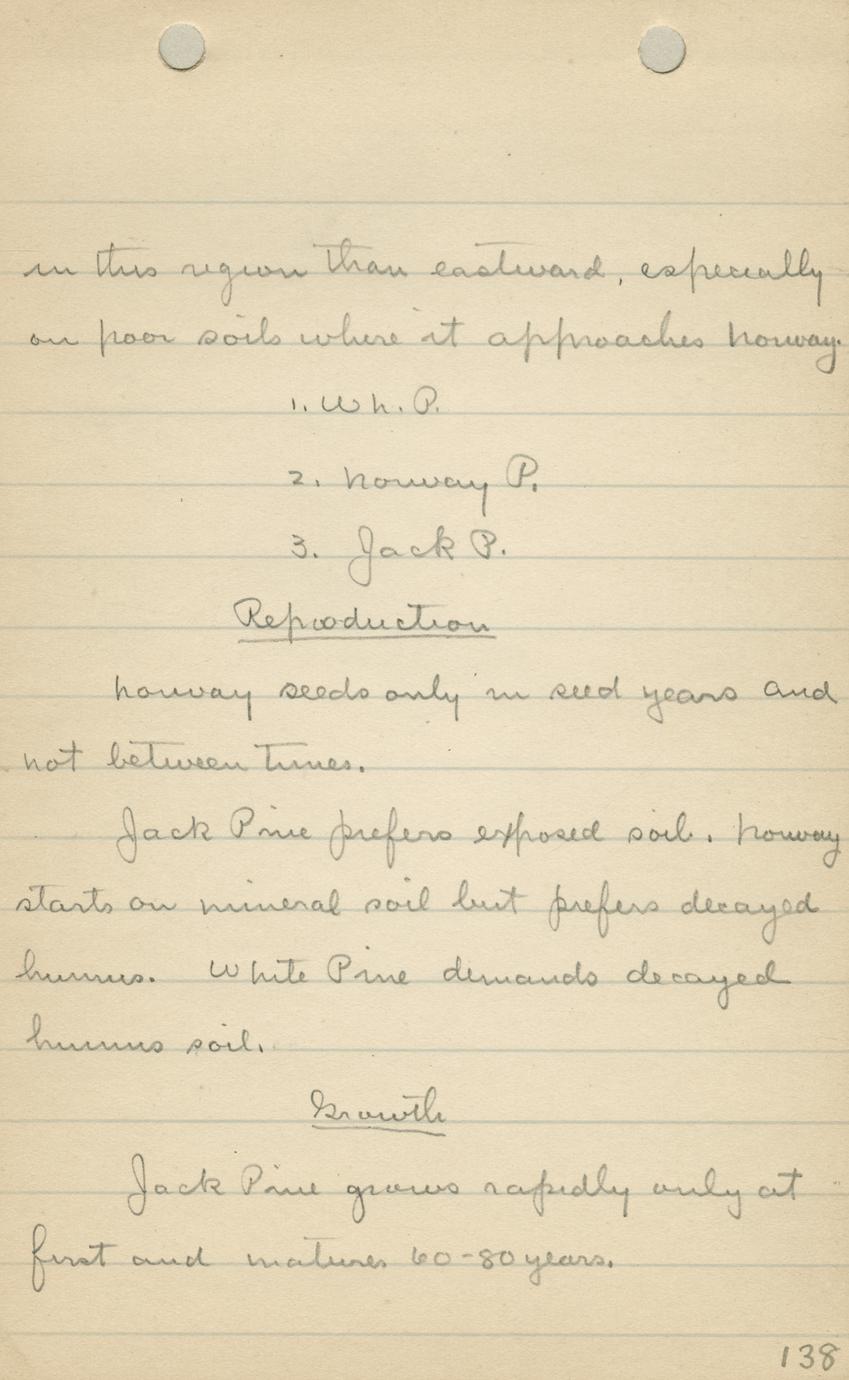 in this region than eastward, especially
on poor soils where it approaches Norway.
1. Wh. P.
2. Norway P.
3. Jack P.
Reproduction
Norway seeds only in seed years and
not between times.
Jack Pine prefers exposed soil. Norway
starts on mineral soil but prefers decayed
humus. White Pine demands decayed
humus soil.
Growth
Jack Pine grows rapidly only at
first and matures 60-80 years.
138